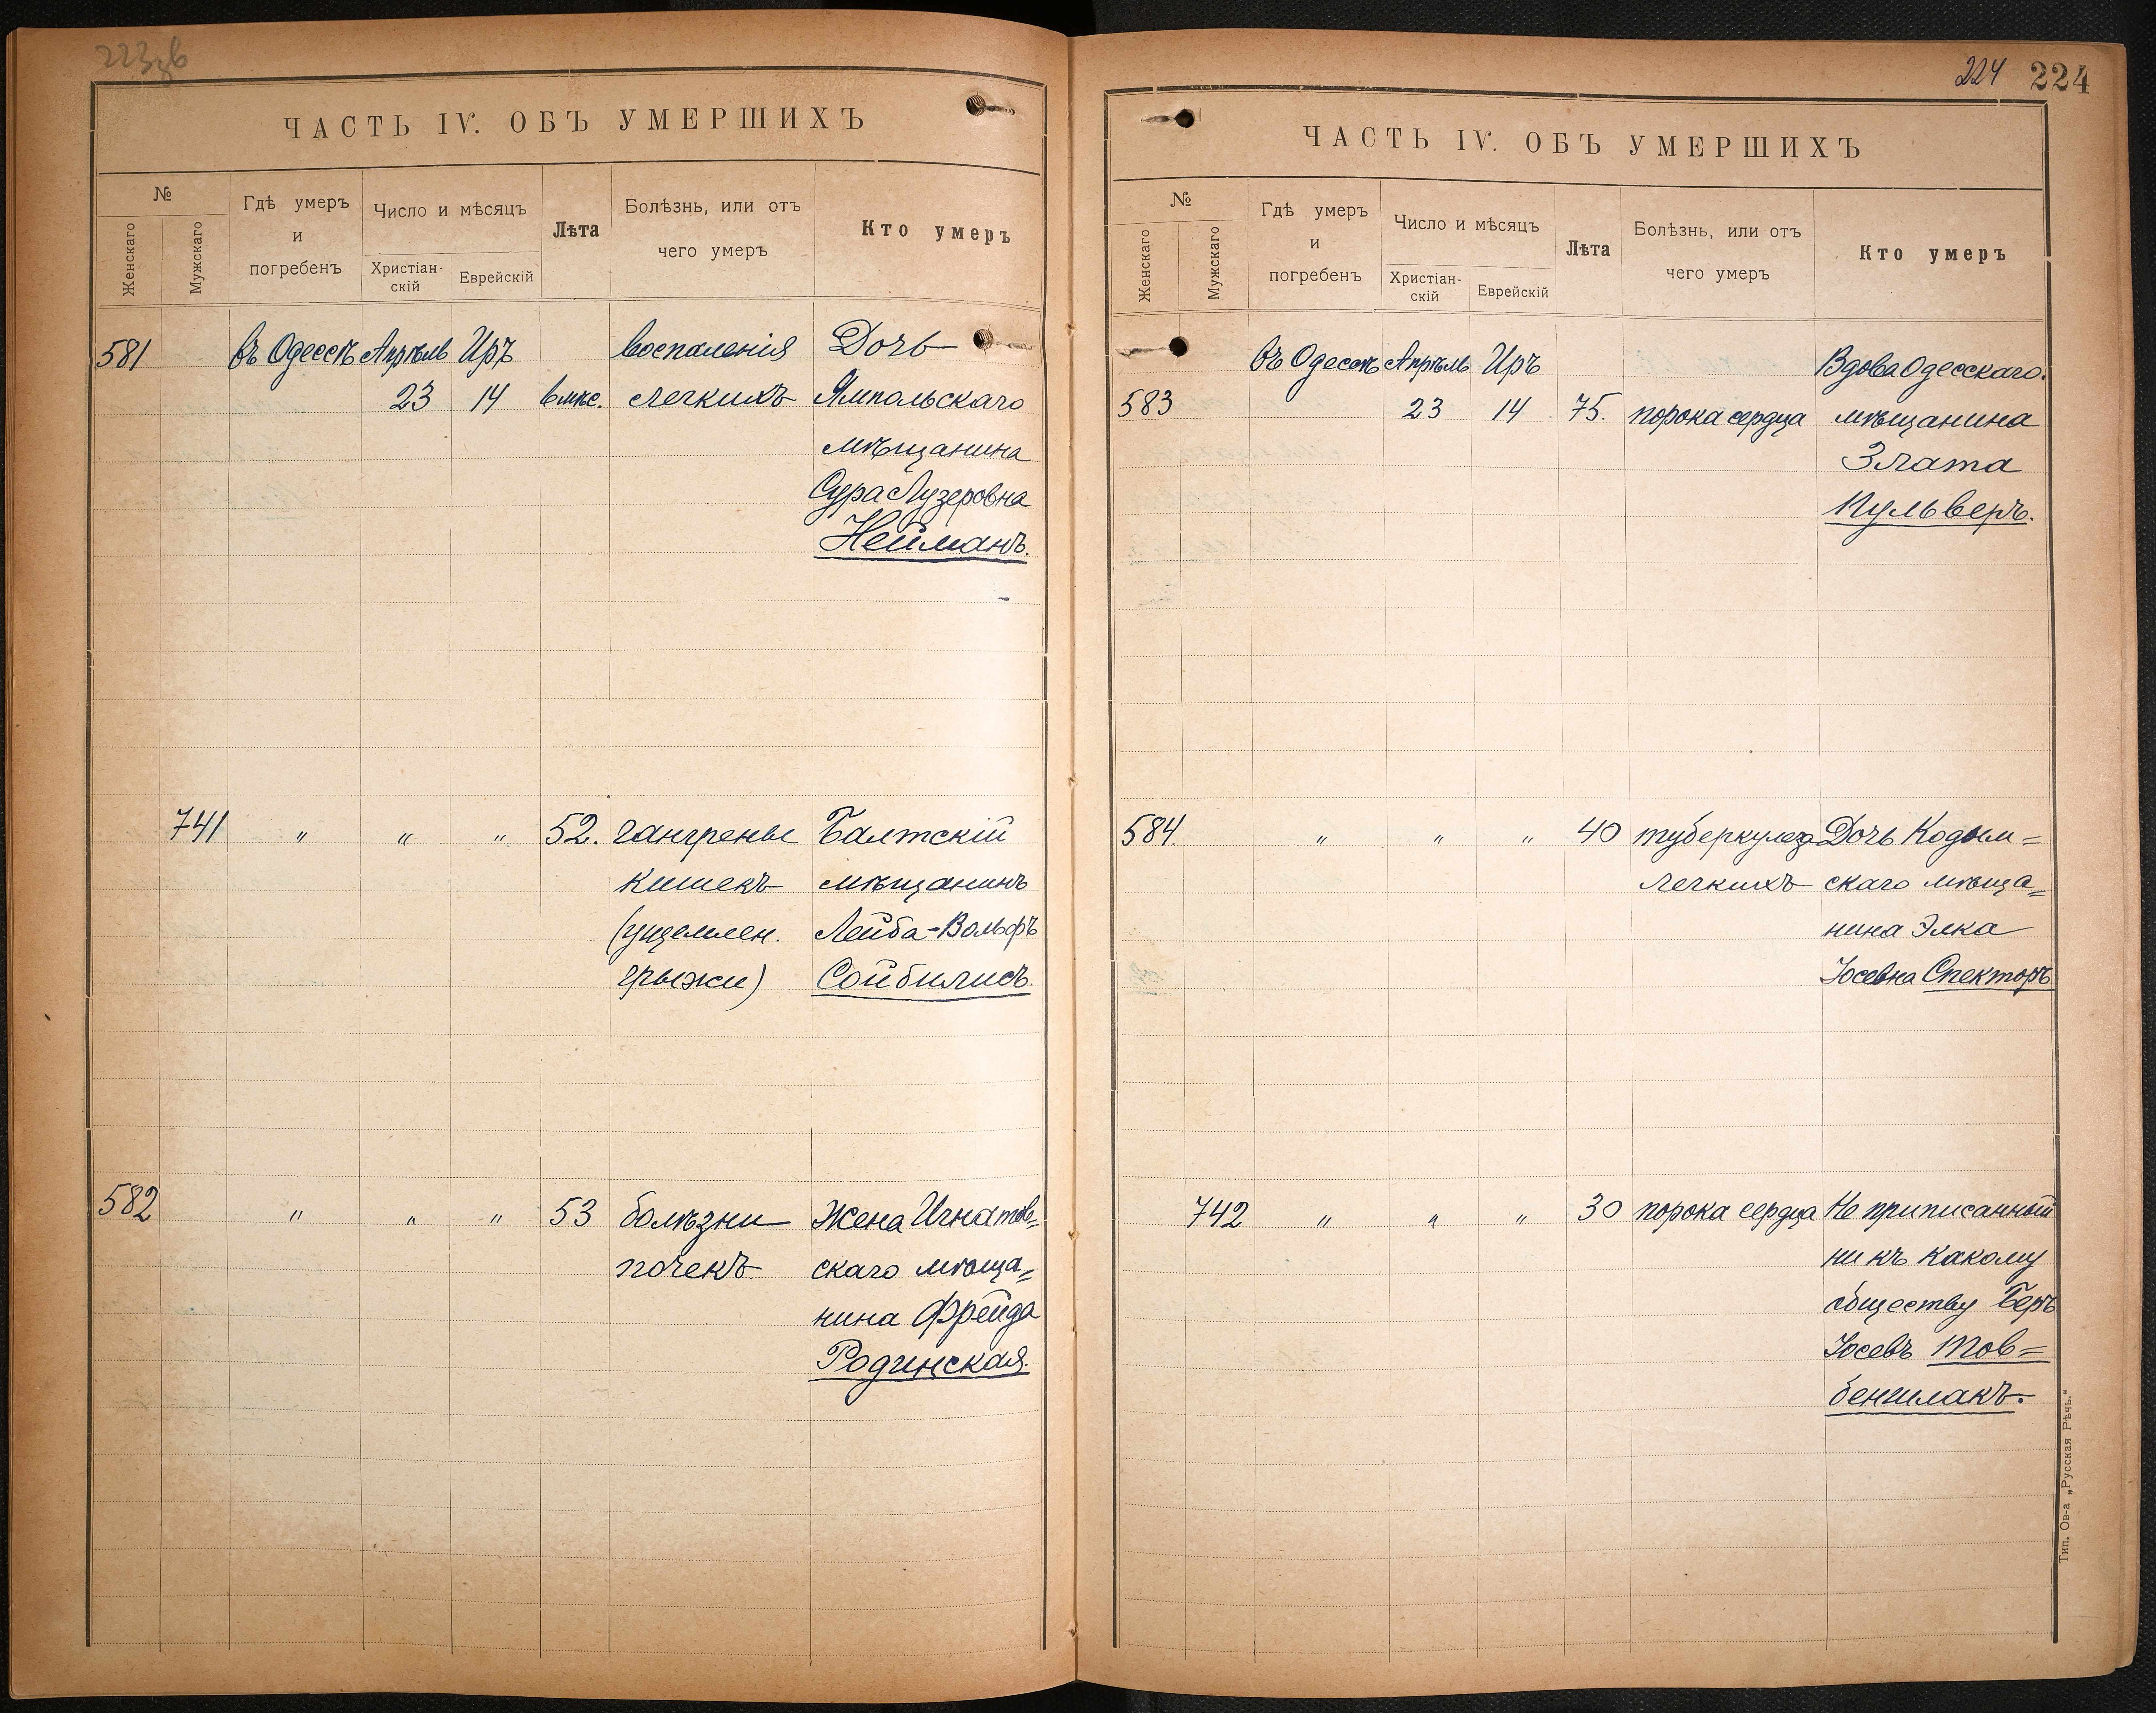 ЧАСТЬ IV. ОБЪ УМЕРШИХЪ
№
Женскаго
Мужскаго
Гдѣ умеръ
и
погребенъ
Число и мѣсяцъ
Христіан-
скій
Еврейскій
Лѣта
Болѣзнь, или отъ
чего умеръ
Кто умеръ
581 въ Одессѣ Апрѣль Иръ воспаленія Дочь
23 14 6 мѣс. легкихъ Ямпольскаго
мѣщанина
Сура Лузеровна
Нейманъ.
741 " " " 52. гангрены Балтскій
кишекъ мѣщанинъ
(ущемлен. Лейба-Вольфъ
грыжи) Сойбилисъ.
582 " " " 53 болѣзни Жена Игнатов=
почекъ. скаго мѣща=
нина Фрейда
Родинская.
224 224
ЧАСТЬ IV. ОБЪ УМЕРШИХЪ
№
Женскаго
Мужскаго
Гдѣ умеръ
и
погребенъ
Число и мѣсяцъ
Христіан-
скій
Еврейскій
Лѣта
Болѣзнь, или отъ
чего умеръ
Кто умеръ
въ Одессѣ Апрѣль Иръ Вдова Одесскаго
583 23 14 75. порока сердца мѣщанина
Злата
Кульверъ.
584. " " " 40 туберкулеза Дочь Кодым=
легкихъ скаго мѣща=
нина Элка
Іосевна Спекторъ
742 " " " 30 порока сердца Не приписанный
ни къ какому
обществу Беръ
Іосевъ Тов=
беншлакъ.
Тип. Ов-а „Русская Рѣчь."